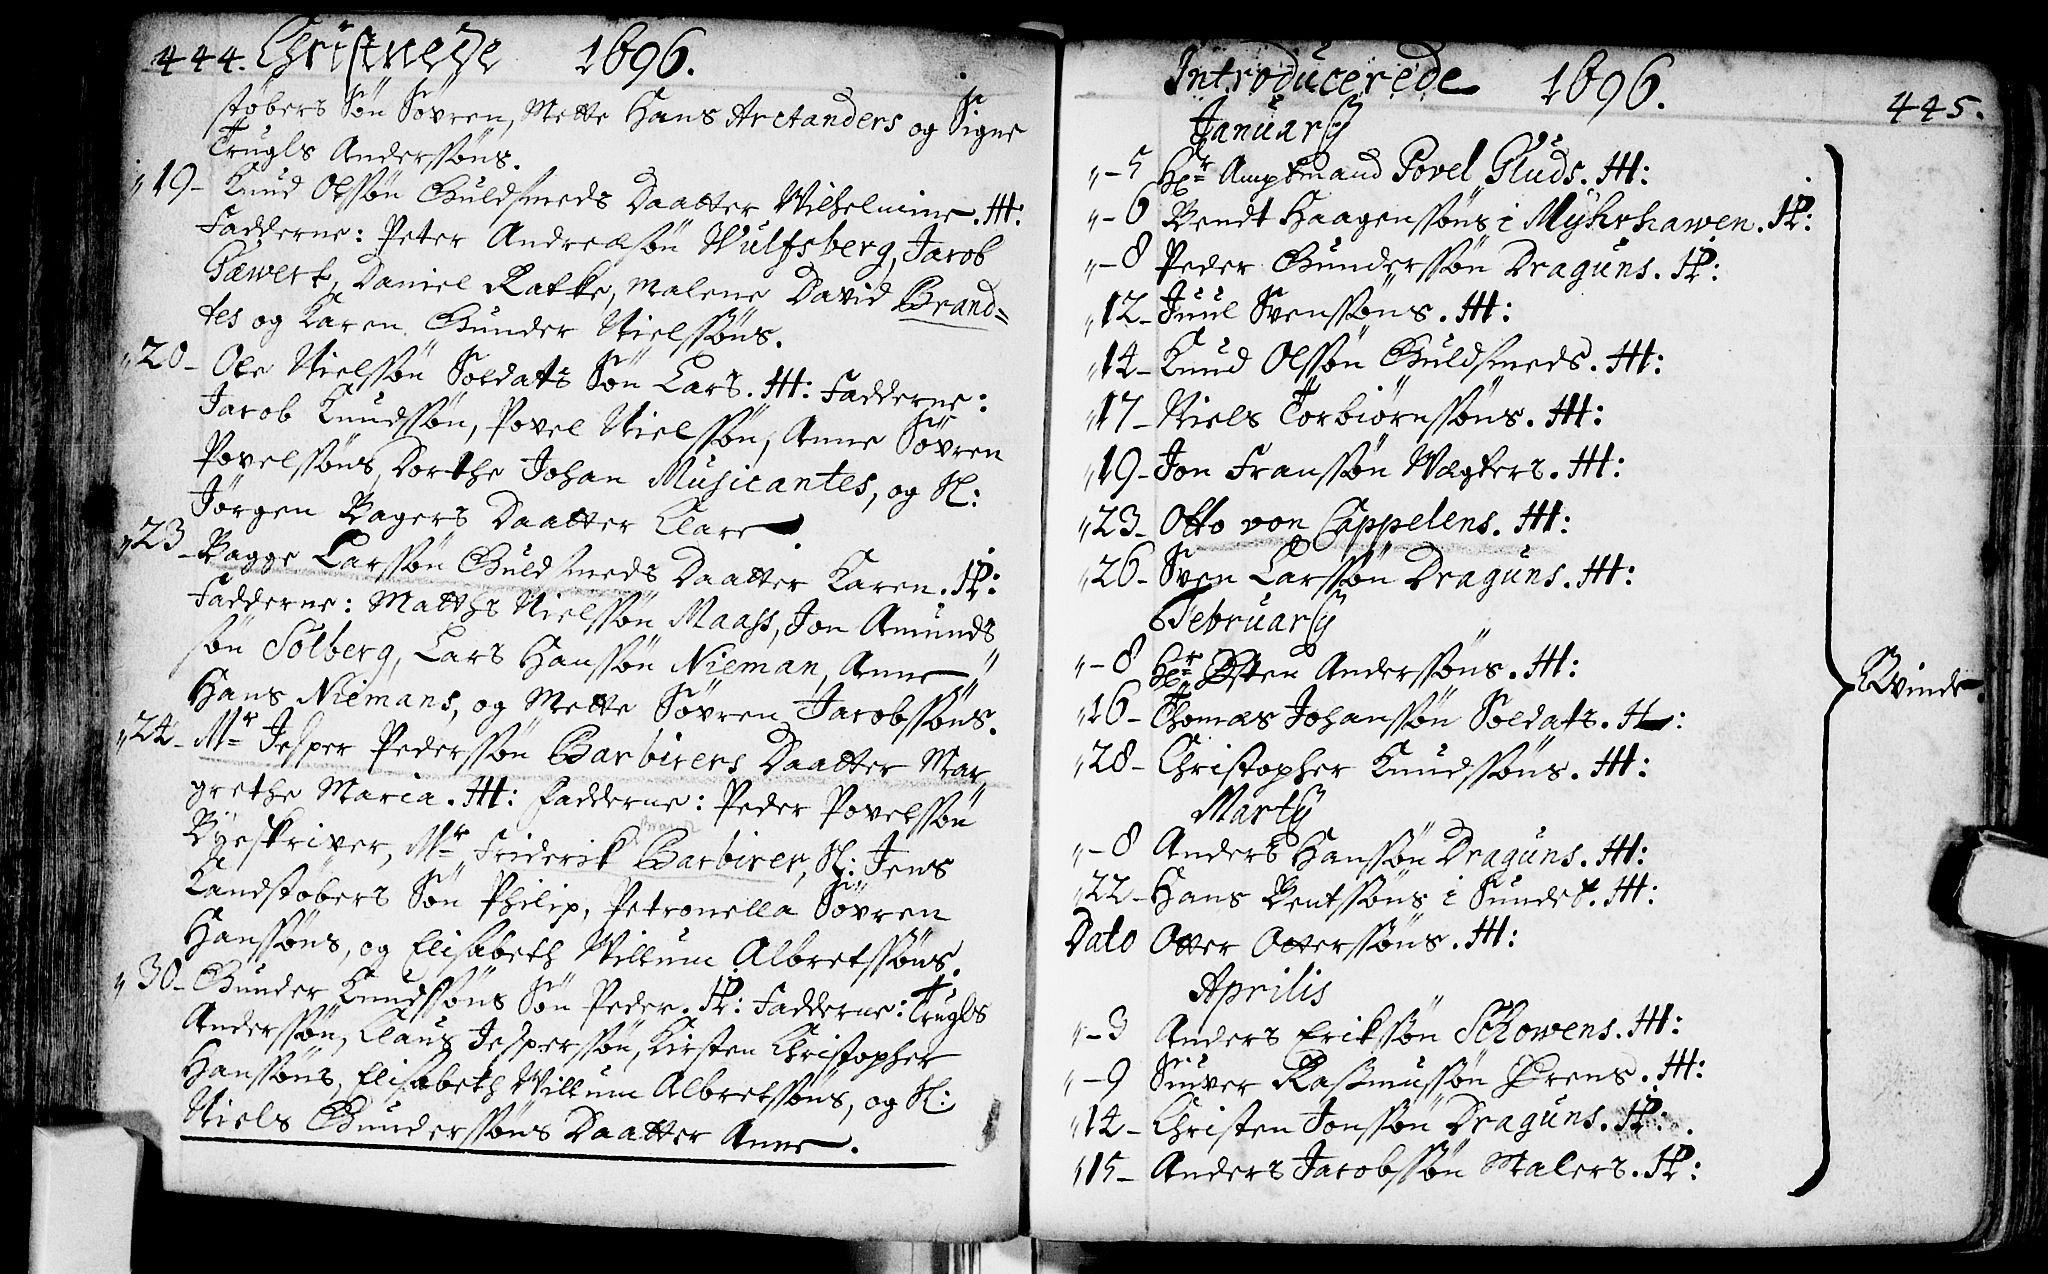 444. Christnede 1696.
støbers Søn Søvren, Mette Hans Arctanders og Signe
Trugls Anderssøns.
19 - Knud Olssøn Guldsmeds Daatter Wilhelmine. H:
Fadderne: Peter Andreæsøn Wulfsberg, Jacob
Gæwert, Daniel Ratke, Malene David Brand=
tes og Karen Gunder Nielssøns.
20 - Ole Nielssøn Soldats Søn Lars. H: Fadderne:
Jacob Knudssøn, Povel Nielssøn, Anne Søvren
Povelssøns, Dorthe Johan Musicantes, og Sl:
Jørgen Bagers Daatter Clare.
23 - Bagge Larssøn Guldsmeds Daatter Karen. P:
Fadderne: Matths Nielssøn Maass, Jon Amunds
søn Solberg, Lars Hanssøn Nieman, Anne
Hans Niemans, og Mette Søvren Jacobssøns.
24 - Mr Jesper Pederssøn Barbirers Daatter Mar
grethe Maria. H: Fadderne: Peder Povelssøn
Byeskriver, Mr Friderik Barbirer, Sl: Jens
Kandstøbers Søn Philip, Petronella Søvren
Hanssøns, og Elisabeth Willum Albretssøns.
30 - Gunder Knudssøns Søn Peder. P: Fadderne: Trugls
Anderssøn, Claus Jesperssøn, Kirsten Christopher
Hanssøns, Elisabeth Willum Albretssøns, og Sl:
Niels Gunderssøns Daatter Anne.
Introducerede 1696. 445.
January
- 5 Hr Amptmand Povel Gluds. H:
- 6 Bendt Haagenssøns i Myhrhawen. P:
- 8 Peder Gunderssøn Draguns. P:
12 - Juul Svenssøns. H:
14 - Knud Olssøn Guldsmeds. H:
17 - Niels Torbiørnssøns. H:
19 - Jon Franssøn Wægters. H:
23 - Otto von Cappelens. H:
26 - Sven Larssøn Draguns. H:
February
- 8 Hr Østen Anderssøns. H:
16 - Thomas Johanssøn Soldats. H:
28 - Christopher Knudssøns. H:
Marty
- 8 Anders Hanssøn Draguns. H:
22 - Hans Bentssøns i Sundet. H:
Dato Otter Otterssøns. H:
Aprilis
- 3 Anders Erikssøn Schowens. H:
- 9 Siuver Rasmussøn Ørens. H:
14 - Christen Jonssøn Draguns. P:
15 - Anders Jacobssøn Malers. P:
Kvinde.